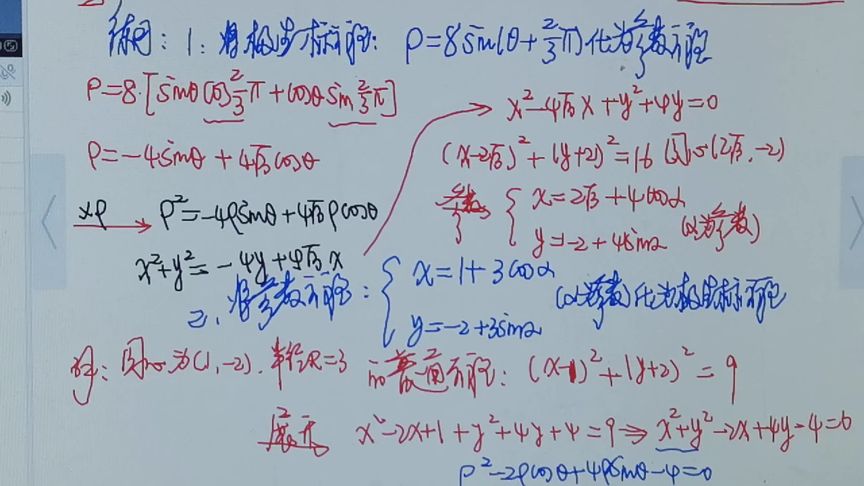 练习：1：将极坐标方程：ρ=8sin(θ+2/3π)化为参数方程
ρ=8·[sinθcos2/3π+cosθsin2/3π]
ρ=-4sinθ+4√3cosθ
×ρ → ρ²=-4ρsinθ+4√3ρcosθ
x²+y²=-4y+4√3x
x²-4√3x+y²+4y=0
(x-2√3)²+(y+2)²=16 圆心(2√3,-2)
参数 { x=2√3+4cosα
y=-2+4sinα (α为参数)
2、将参数方程：{ x=1+3cosα
y=-2+3sinα (α为参数)化为极坐标方程
解：圆心为(1,-2).半径R=3 的普通方程：(x-1)²+(y+2)²=9
展开 x²-2x+1+y²+4y+4=9⇒x²+y²-2x+4y-4=0
ρ²-2ρcosθ+4ρsinθ-4=0